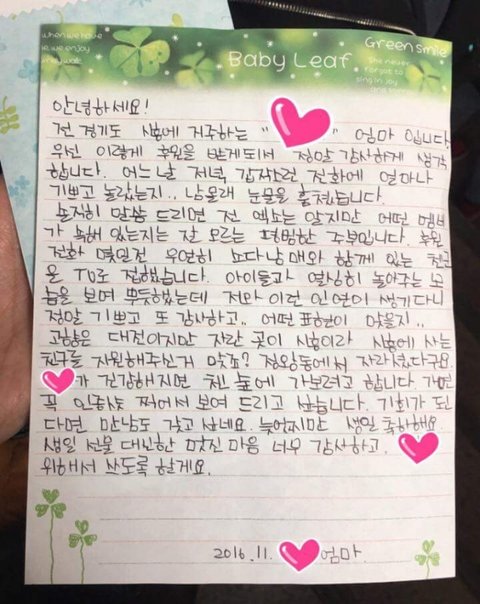 when we have
re, we enjoy
ndy walk.
Baby Leaf
Green smile
She never
forgot to
sing in joy
안녕하세요!
전 경기도 시흥에 거주하는 " " 엄마 입니다
우선 이렇게 후원을 받게되서 정말 감사하게 생각
합니다. 어느날 저녁, 갑작스런 전화에 얼마나
기쁘고 놀랐는지.. 남몰래 눈물을 훔쳤습니다.
솔직히 말씀 드리면 전 엑소는 알지만 어떤 멤버
가 속해 있는지는 잘 모르는 평범한 주부입니다. 후원
전화 몇일전 우연히 소다남매와 함께 있는 첸군
을 TV로 접했습니다. 아이들과 열심히 놀아주는 모
습을 보며 뿌듯했는데 저와 이런 인연이 생기다니
정말 기쁘고 또 감사하고.. 어떤 표현이 맞을지..
고향은 대전이지만 자란 곳이 시흥이라 시흥에 사는
친구들 지원해주신거 맞죠? 정왕동에서 자라셨다구요.
가 건강해지면 첸 숲에 가보려고 합니다. 가면
꼭 인증샷 찍어서 보여 드리고 싶습니다. 기회가 된
다면 만남도 갖고 싶네요. 늦었지만 생일 축하해요.
생일 선물 대신한 멋진 마음 너무 감사하고,
위해서 쓰도록 할게요.
2016. 11. 엄마.